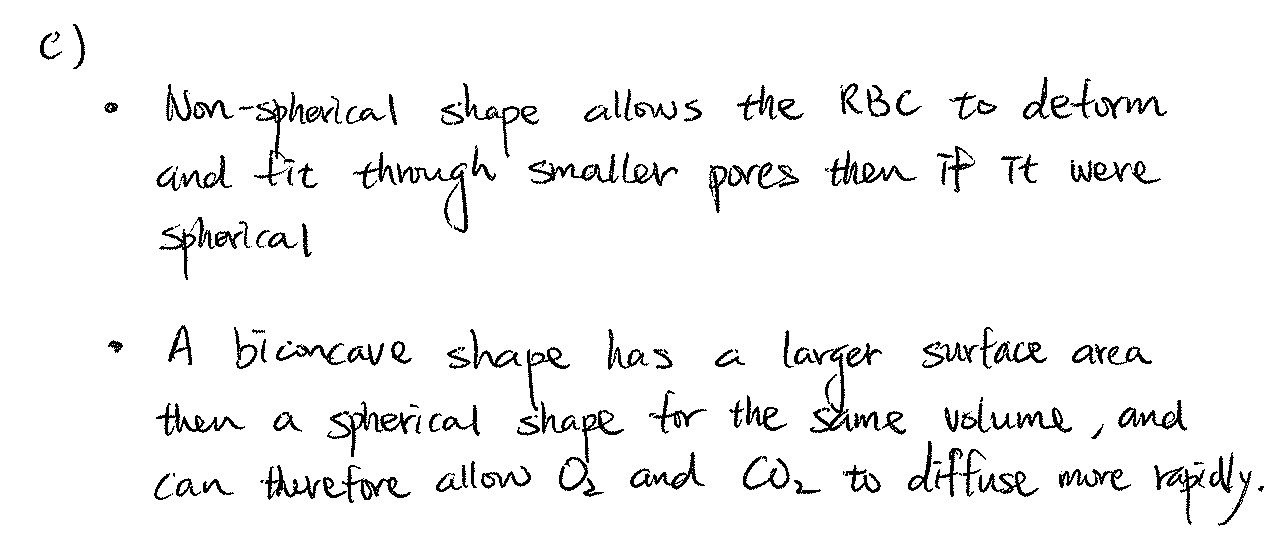 c)
• Non-spherical shape allows the RBC to deform
and fit through smaller pores then if it were
spherical
• A biconcave shape has a larger surface area
then a spherical shape for the same volume, and
can therefore allow O₂ and CO₂ to diffuse more rapidly.